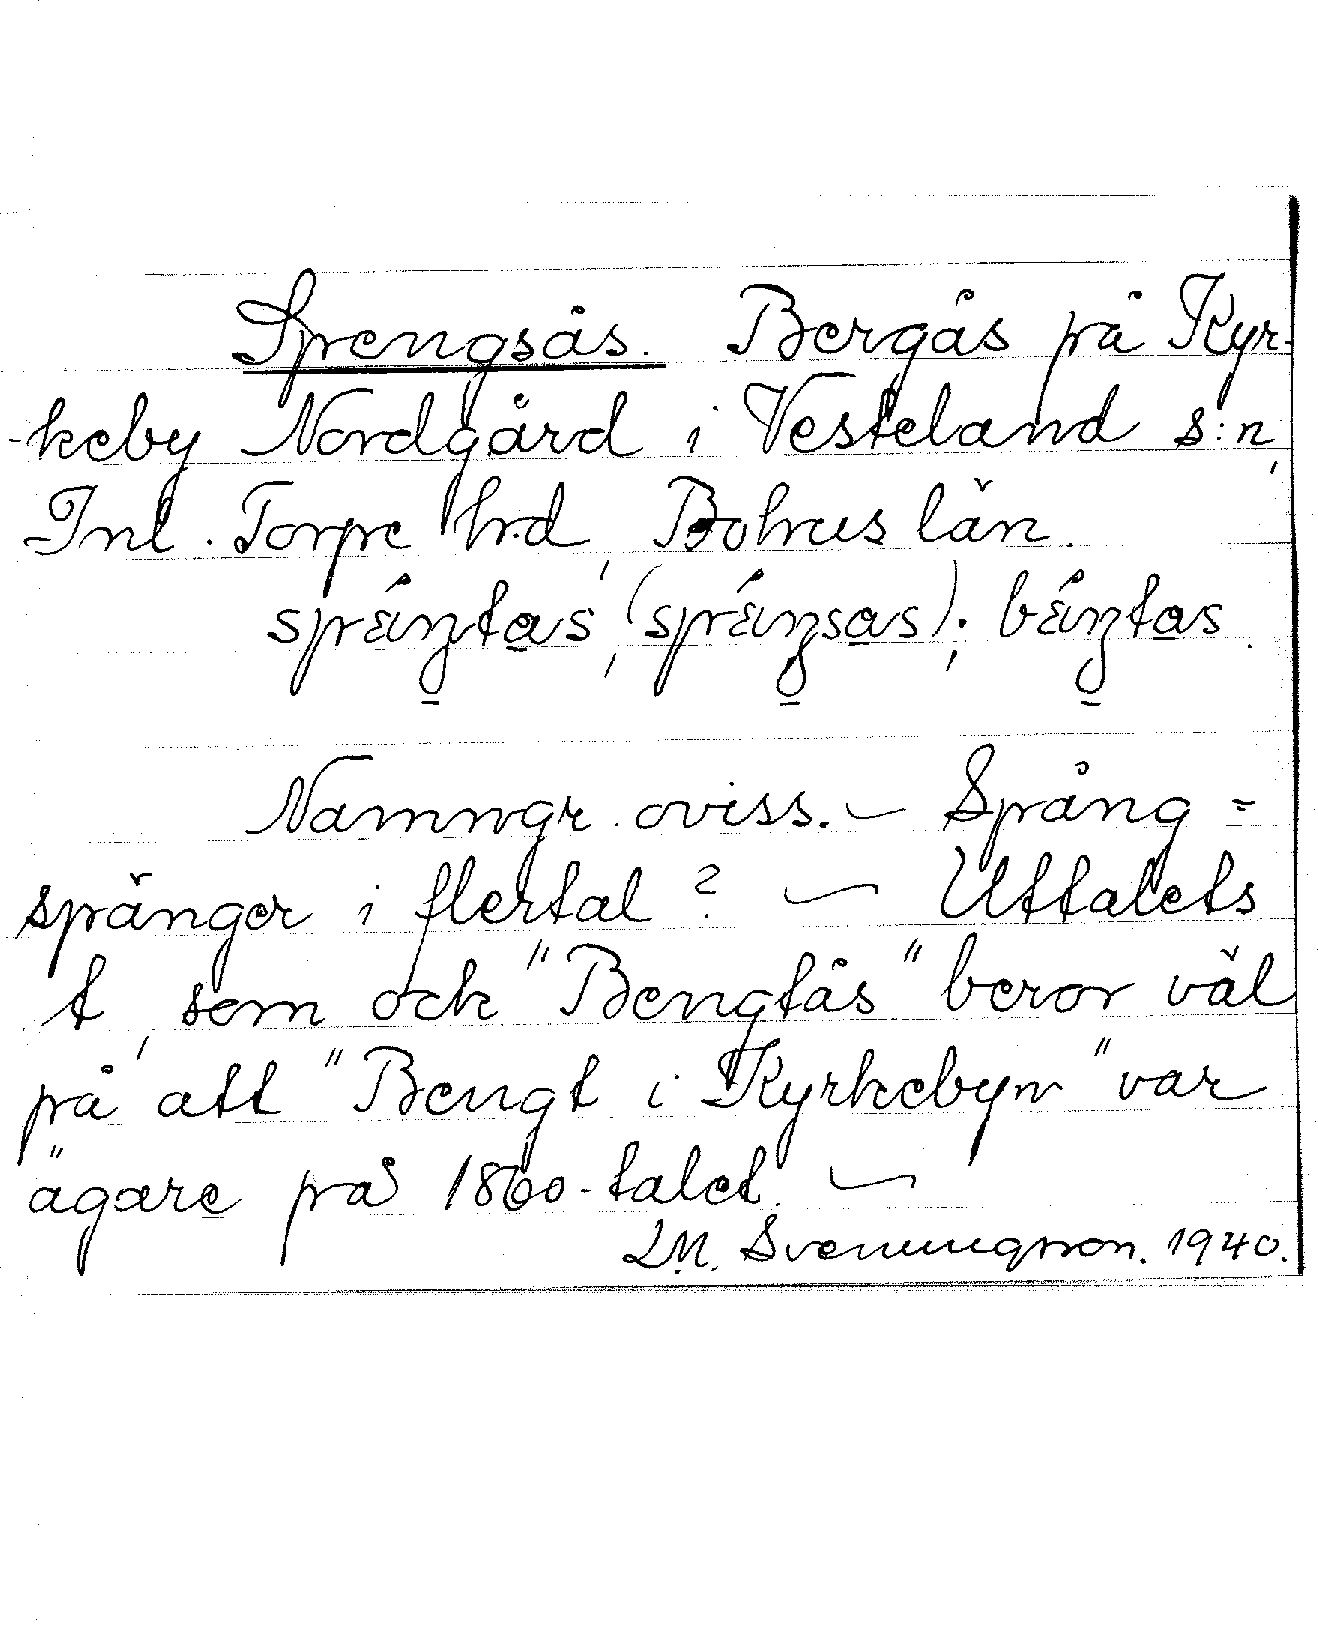 Sprengsås. Bergås på Kyr-
-keby Nordgård i Vesteland s:n,
Inl. Torpe hd, Bohus län.
spráŋtas, (spráŋsas); báŋtas.
Namngr. oviss. — Spång =
spänger i flertal? — Uttalets
t, som och "Bengtås" beror väl
på att "Bengt i Kyrkebyn" var
ägare på 1860-talet. —
L.M. Svenungsson. 1940.